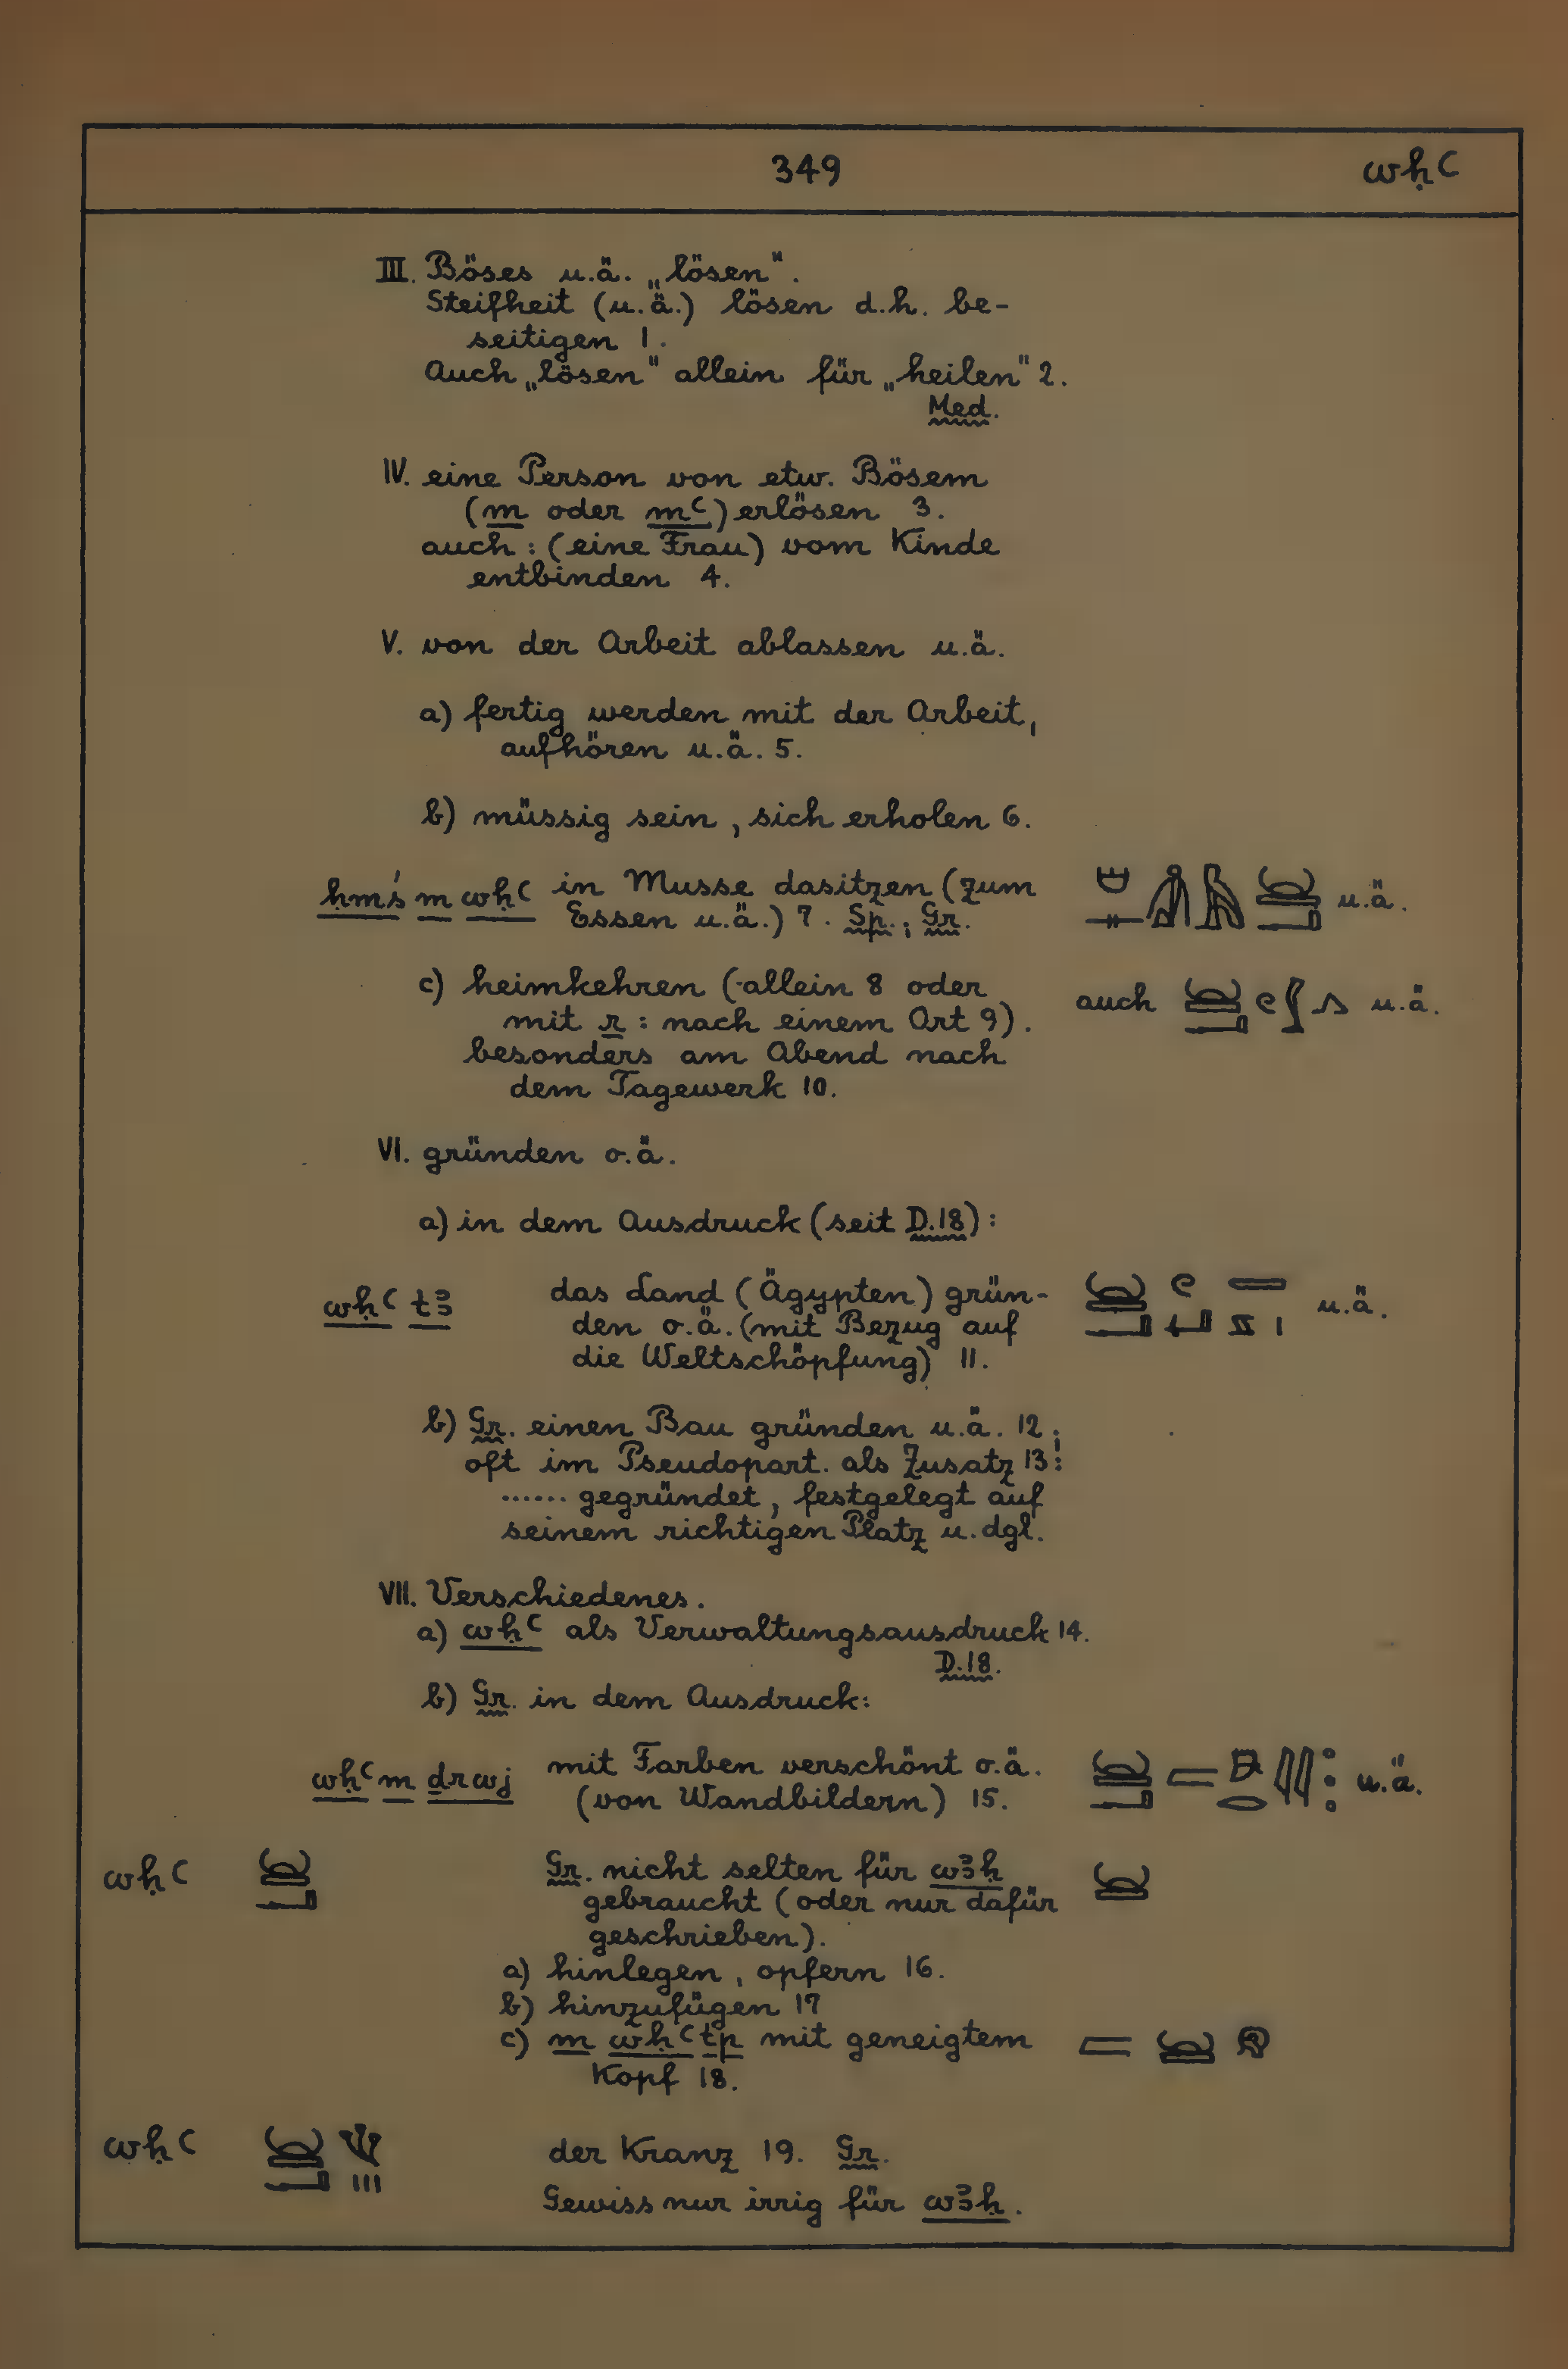 349 wḥꜥ
III. Böses u.ä. „lösen“.
Steifheit (u.ä.) lösen d.h. be-
seitigen 1.
Auch „lösen“ allein für „heilen“ 2.
Med.
IV. eine Person von etw. Bösem
(m oder mꜥ) erlösen 3.
auch: (eine Frau) vom Kinde
entbinden 4.
V. von der Arbeit ablassen u.ä.
a) fertig werden mit der Arbeit,
aufhören u.ä. 5.
b) müssig sein, sich erholen 6.
ḥmś m wḥꜥ in Musse dasitzen (zum u.ä.
Essen u.ä.) 7. Sp.; Gr.
c) heimkehren (allein 8 oder auch u.ä.
mit r: nach einem Ort 9).
besonders am Abend nach
dem Tagewerk 10.
VI. gründen o.ä.
a) in dem Ausdruck (seit D.18):
wḥꜥ tꜣ das Land (Ägypten) grün- u.ä.
den o.ä. (mit Bezug auf
die Weltschöpfung) 11.
b) Gr. einen Bau gründen u.ä. 12;
oft im Pseudopart. als Zusatz 13:
...... gegründet, festgelegt auf
seinem richtigen Platz u. dgl.
VII. Verschiedenes.
a) wḥꜥ als Verwaltungsausdruck 14.
D.18.
b) Gr. in dem Ausdruck:
wḥꜥ m drwj mit Farben verschönt o.ä. u.ä.
(von Wandbildern) 15.
wḥꜥ Gr. nicht selten für wꜣḥ
gebraucht (oder nur dafür
geschrieben).
a) hinlegen, opfern 16.
b) hinzufügen 17
c) m wḥꜥ tp mit geneigtem
Kopf 18.
wḥꜥ der Kranz 19. Gr.
Gewiss nur irrig für wꜣḥ.